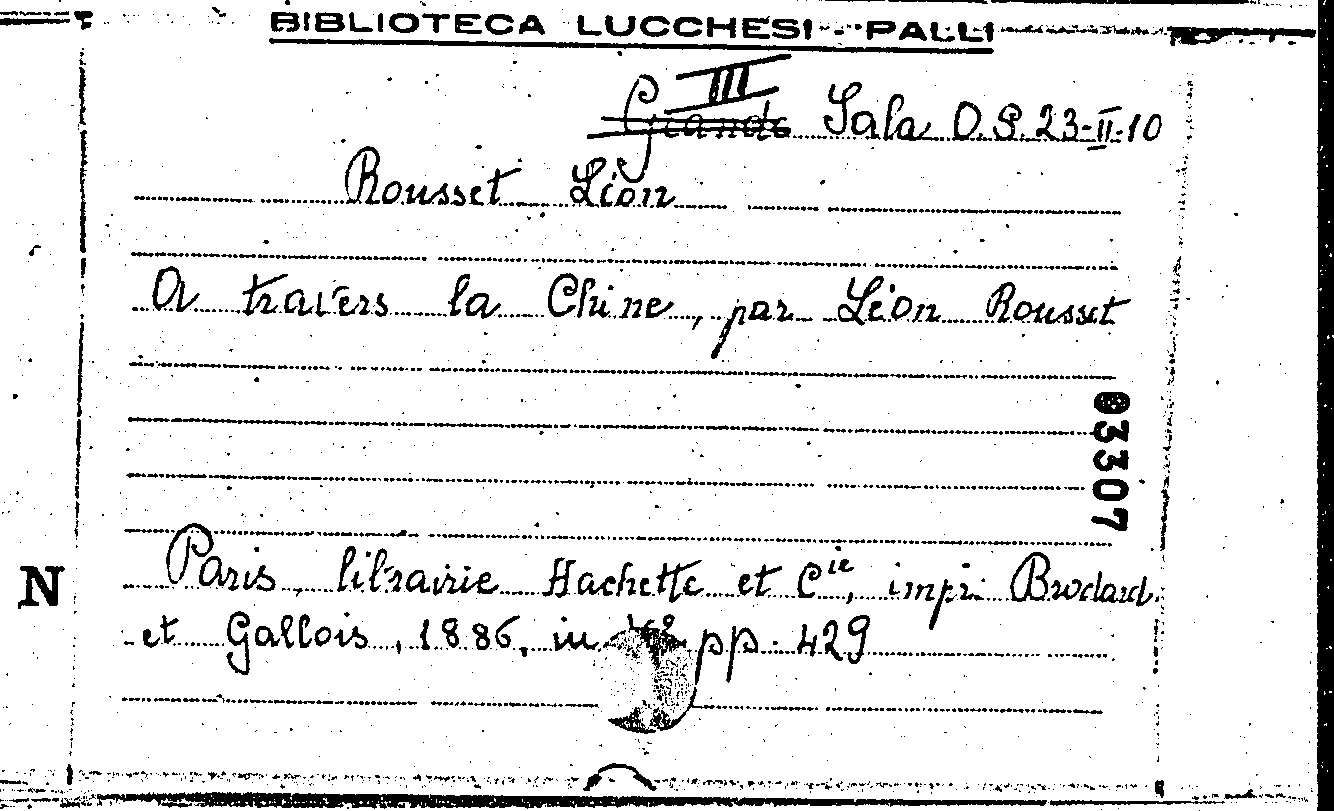 BIBLIOTECA LUCCHESI-PALLI
III
Grande Sala O.S. 23-II-10
Rousset Léon
A travers la Chine, par Léon Rousset
03307
Paris, librairie Hachette et Cie, impr. Brodard
N
et Gallois, 1886, in pp. 429